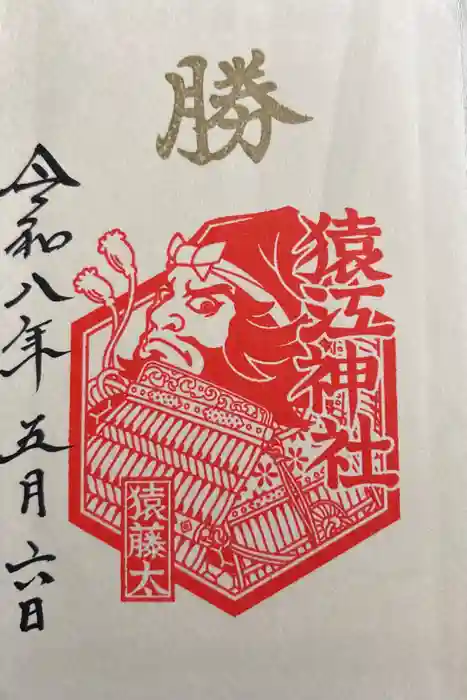 勝
猿江神社
猿藤太
令和八年五月六日